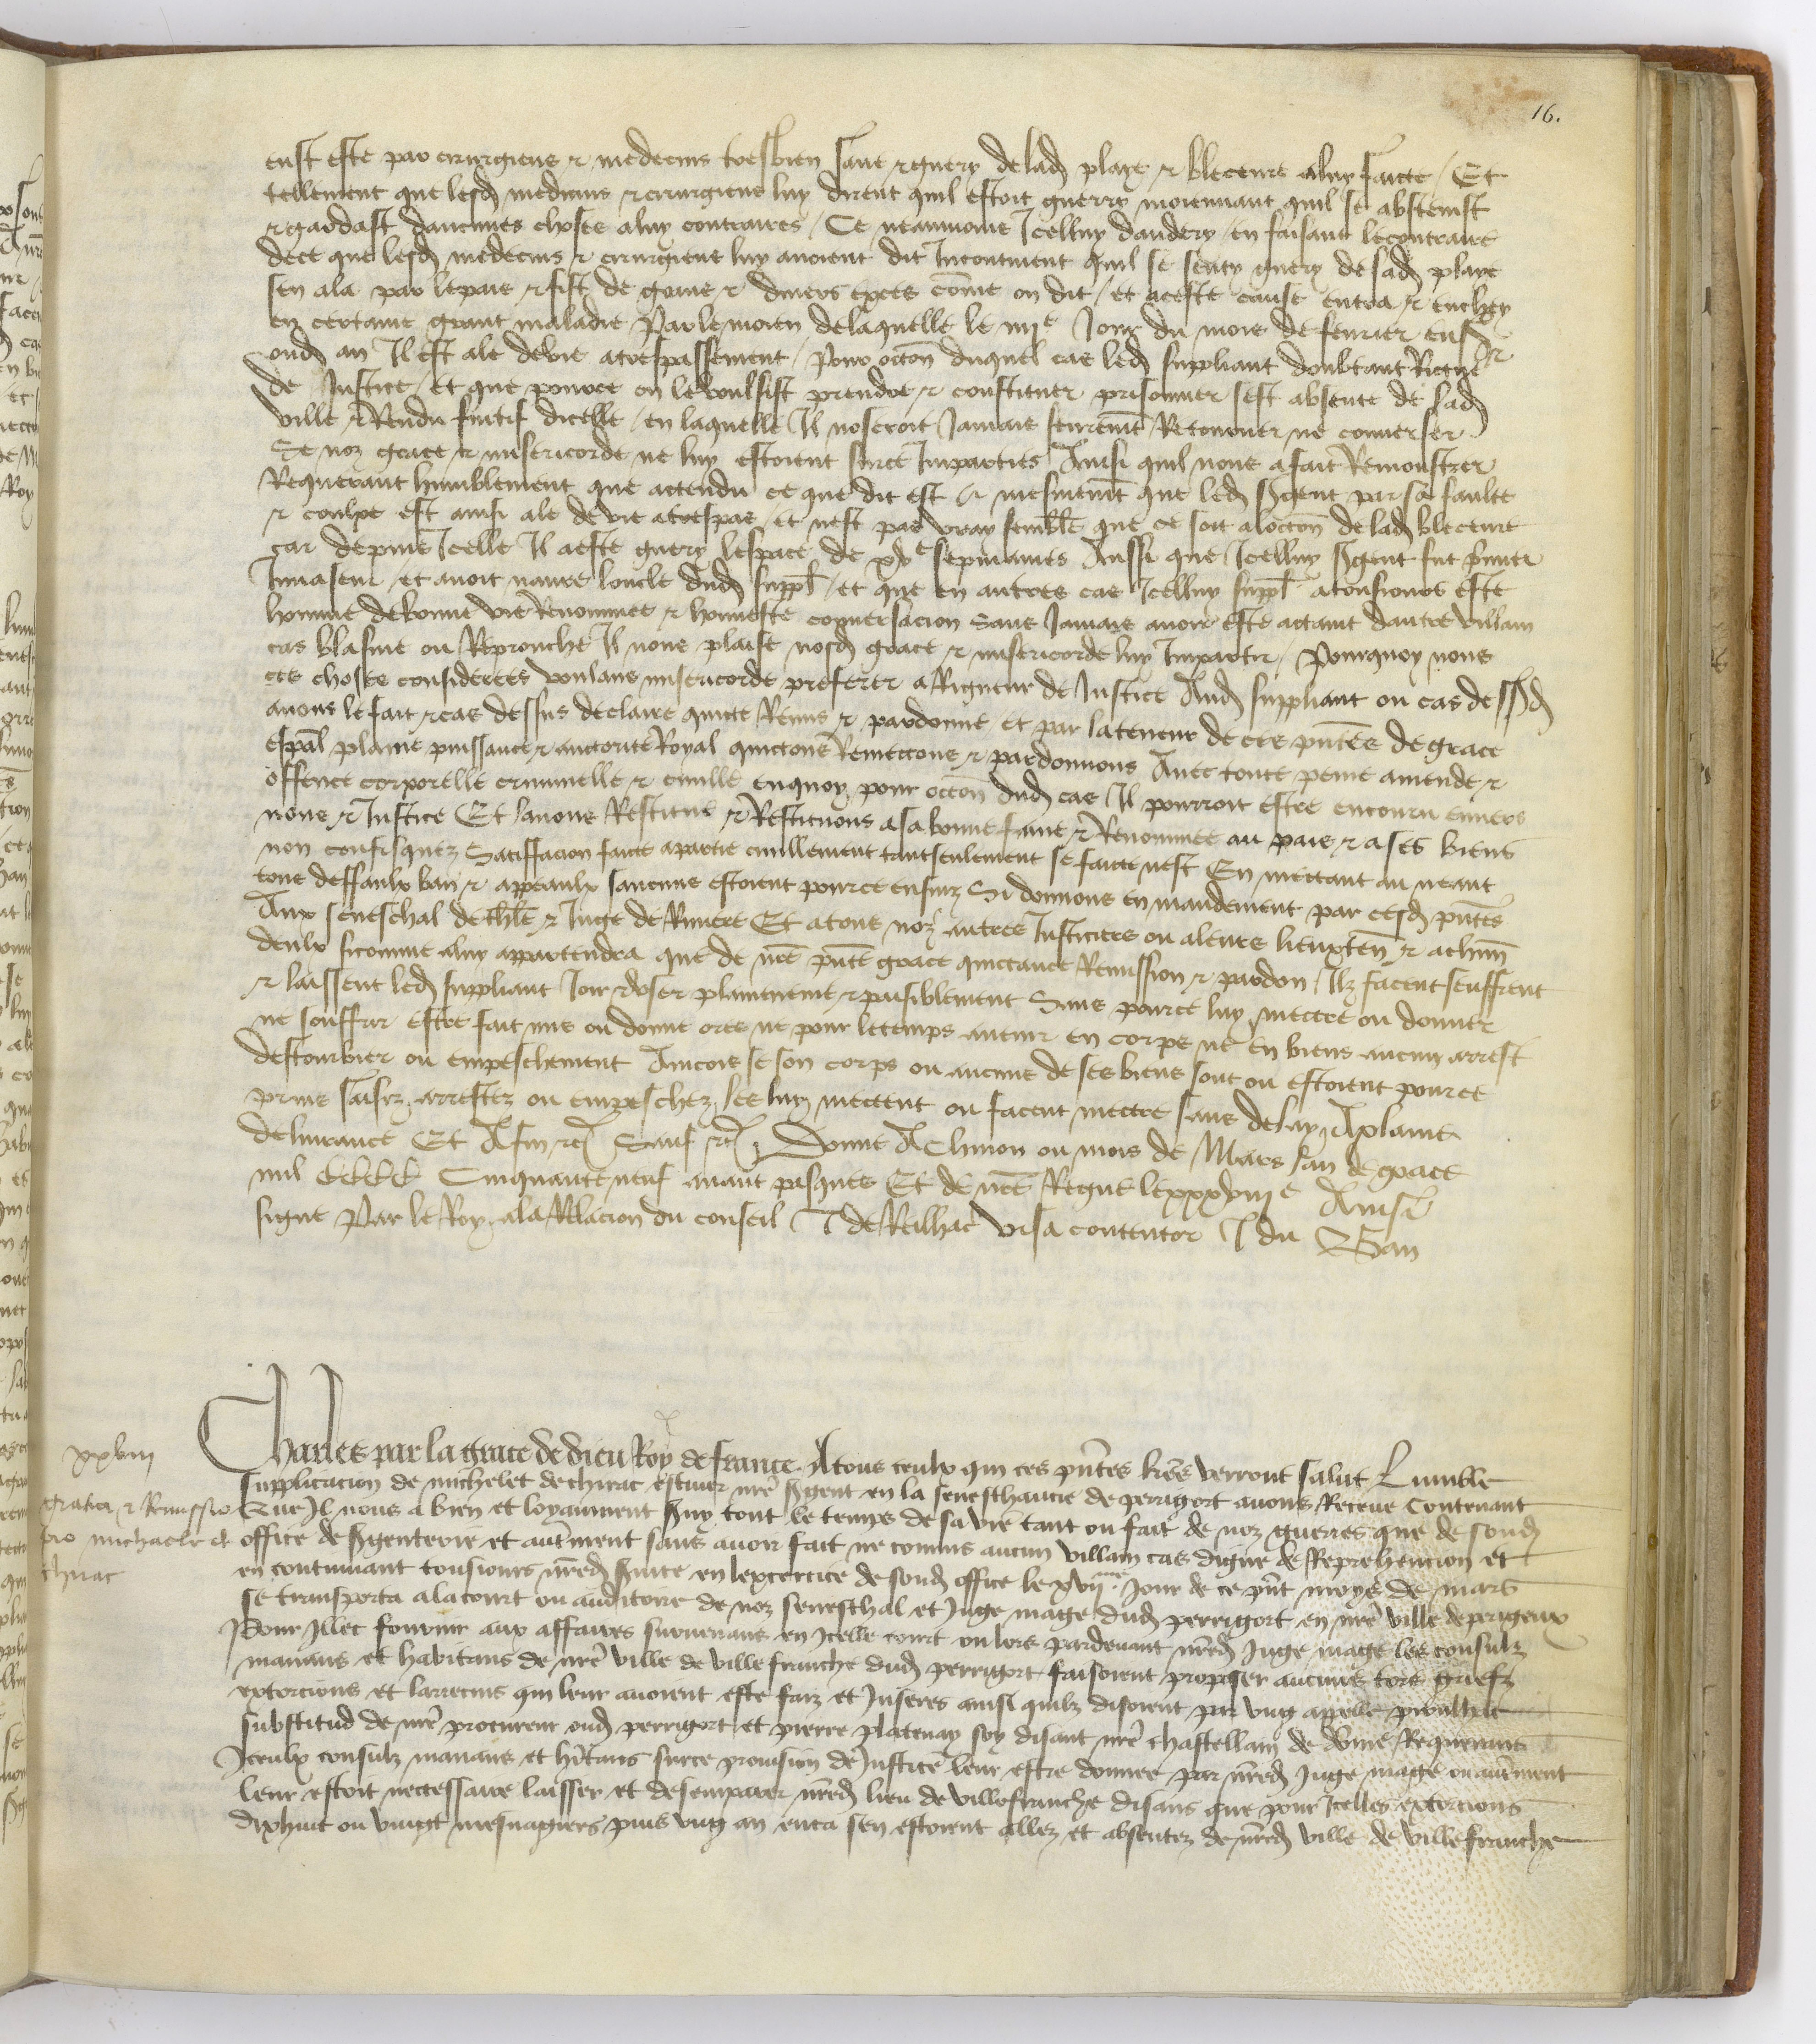 16.
eust este par cirurgiens & medecins tresbien sané & guery de lad plaie & bleceure a luy faicte / Et
tellement que lesd medicins & cirurgiens luy dirent quil estoit guerry moiennant quil se abstenist
& gardast daucunes choses a luy contraires / Ce neanmoins Icelluy dandery / en faisant le contraire
de ce que lesd medecins & cirurgiens luy auoient dit Incontinent quil se senty guery de sad plaie
sen ala par le pais & fist de grans & diuers exces cōme on dit / et a ceste cause entra & enchey
en certaine grant maladie Par le moien de laquelle le iiije Jour du mois de feurier eusd
oud an Il est alé de vie a trespassement / Pour occōn duquel cas led suppliant doubtant Rigueur
de Justice / et que pource on le voulsist prendre & constituer prisonner sest absenté de lad
ville & Rendu fuitif dicelle / en laquelle Il noseroit Jamais seurēmt Retourner ne conuerser
Se noz grace & misericorde ne luy estoient surce Imparties Ainsi quil nous a fait Remonstrer
Requerant humblement que actendu ce que dit est & mesmemēt que led sgent par sa faulte
& coulpe est ainsi alé de vie a trespas / et nest pas vray semblē que ce soit a loccōn de lad bleceure
car depuis Icelle Il a esté guery lespace de xve sepmaines Aussi que Icelluy sgent fut p̄mier
Inuaseur / et auoit nauré loncle dud suppl / et que en autres cas Icelluy suppl a tousiours esté
homme de bonne vie Renommee & honneste conuersacion sans Jamais auoir esté actaint dautre villain
cas blasme ou Reprouche Il nous plaise nosd grace & misericorde luy Impartir / Pourquoy nous
ces choses considerees voulans misericorde preferer a Rigueur de Justice Aud suppliant ou cas dessusd
auons le fait & cas dessus declairé quicté Remis & pardonné et par la teneur de ces pn̄tes de grace
esp̄al plaine puissance & auctorité Royal quictons Remectons & pardonnons Auec toute peine amende &
offence corporelle criminelle & ciuille enquoy pour occōn dud cas Il pourroit estre encouru enuers
nous & Justice Et lauons Restitué & Restituons a sa bonne fame & Renommee au pais & a ses biens
non confisquez Satisfacion faicte a partie ciuillement tant seulement se faicte nest En mectant au neant
tous deffaulx ban & appeaulx saucuns estoient pource ensuiz Si donnons en mandement par cesd pn̄tes
Aux seneschal de & Juge de Riuiere Et a tous noz autres Justiciers ou a leurs lieuxten̄ & a chūn
deulx si comme a luy appartendra que de nr̄e pn̄te grace quictance Remission & pardon / Ilz facent seuffrent
& laissent led suppliant Joir & vser plainement & paisiblement Sans pource luy mectre ou donner
ne souffrir estre fait mis ou donné ores ne pour le temps auenir en corps ne en biens aucun arrest
destourbier ou empeschement Aincois se son corps ou aucuns de ses biens sont ou estoient pource
prins saisiz arrestez ou empeschez les luy mectent ou facent mectre sans delay A plaine
deliurance Et Afin &c Sauf &c Donné A Chinon ou mois de Mars lan de grace
mil CCCC Cinquante neuf auant pasques Et de nr̄e Regne le xxxviije Ainsi
signe Par le Roy a la Relacion du conseil J de Reilhac visa contentor J du Ban
xxviij
Charles par la grace de dieu Roy de france A tous ceulx qui ces pn̄tes lr̄es verront salut Lumble
supplicacion de michelet de chirac nr̄e sgent en la seneschaucie de perrigort auons Receue Contenant
gratia & Remissio
Que Il nous a bien et loyaument suy tout le temps de sa vie tant ou fait de noz guerres que de sond
pro michaele de
office de sgenterie et autrement sans auoir fait ne commis aucun villain cas digne de Reprehencion et
chirac
en continuant tousiours nr̄ed suice en lexcercice de sond office le xviime Jour de ce pn̄t moys de mars
se transporta a la court ou auditoire de noz seneschal et Juge mage dud perrigort en nr̄e ville de perigeux
Pour Illec fournir aux affaires suruenans en Icelle court ou lors pardeuant nr̄ed Juge mage les consulz
manans et habitans de nr̄e ville de ville franche dud perrigort faisoient proposer aucuns tors griefz
extorcions et larrecins qui leur auoient esté faiz et Inferes ainsi quilz disoient par vng appellé
substitud de nr̄e procureur oud perrigort et pierre platenay soy disant nr̄e chastellain de Requerans
Iceulx consulz manans et hītans surce prouision de Justice leur estre donnee par nr̄ed Juge mage ou autrement
leur estoit neccessaire laisser et desemparer nr̄ed lieu de villefranche disans que pour Icelles extorcions
dixhuit ou vingt mesnagiers puis vng an enca sen estoient allez et absentez de nr̄ed ville de villefranche